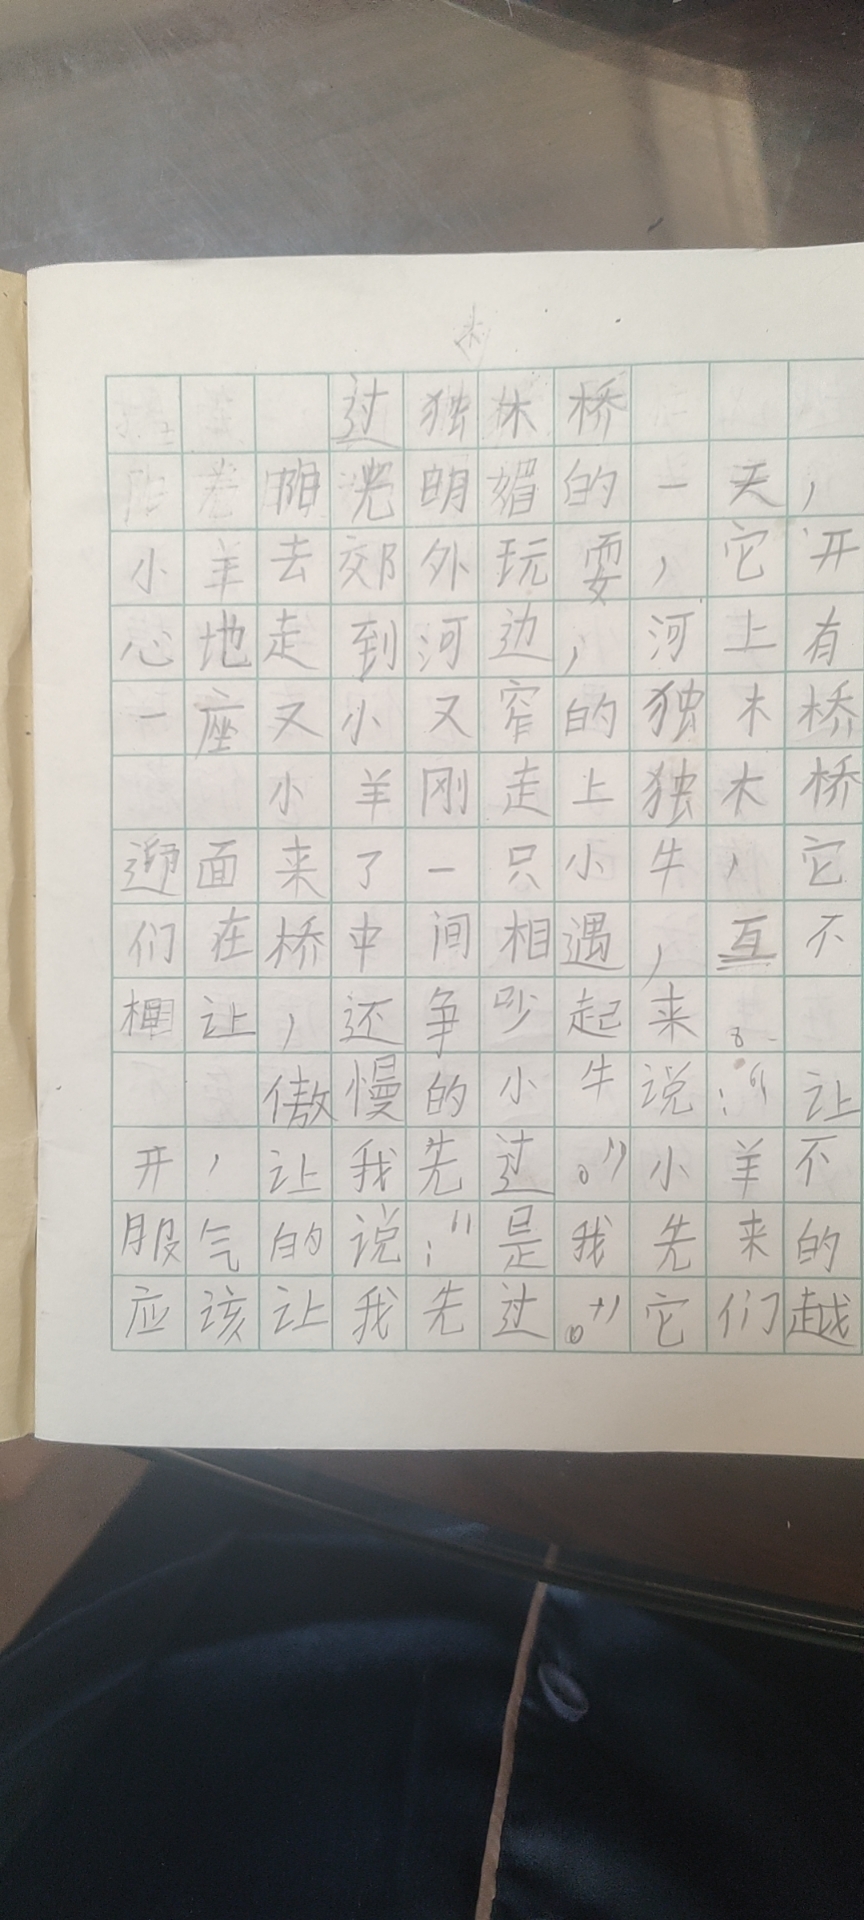 过独木桥
阳光明媚的一天，
小羊去郊外玩耍，它开
心地走到河边，河上有
一座又小又窄的独木桥
小羊刚走上独木桥
迎面来了一只小牛，它
们在桥中间相遇，互不
相让，还争吵起来。
傲慢的小牛说：“让
开，让我先过。”小羊不
服气的说：“是我先来的
应该让我先过。”它们越